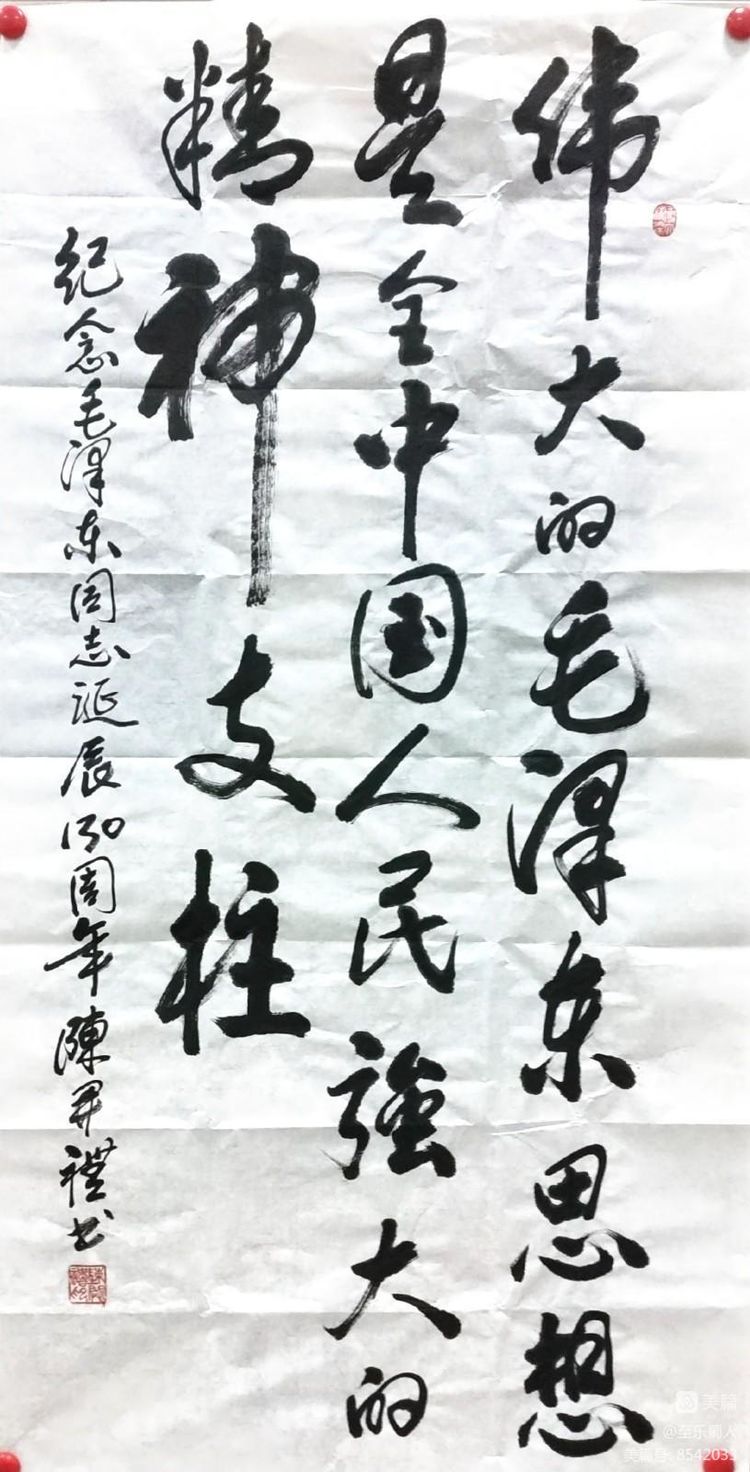 伟大的毛泽东思想
是全中国人民強大的
精神支柱
纪念毛泽东同志诞辰130周年陳开禮书
美篇
@至乐前人
美篇号: 8542033